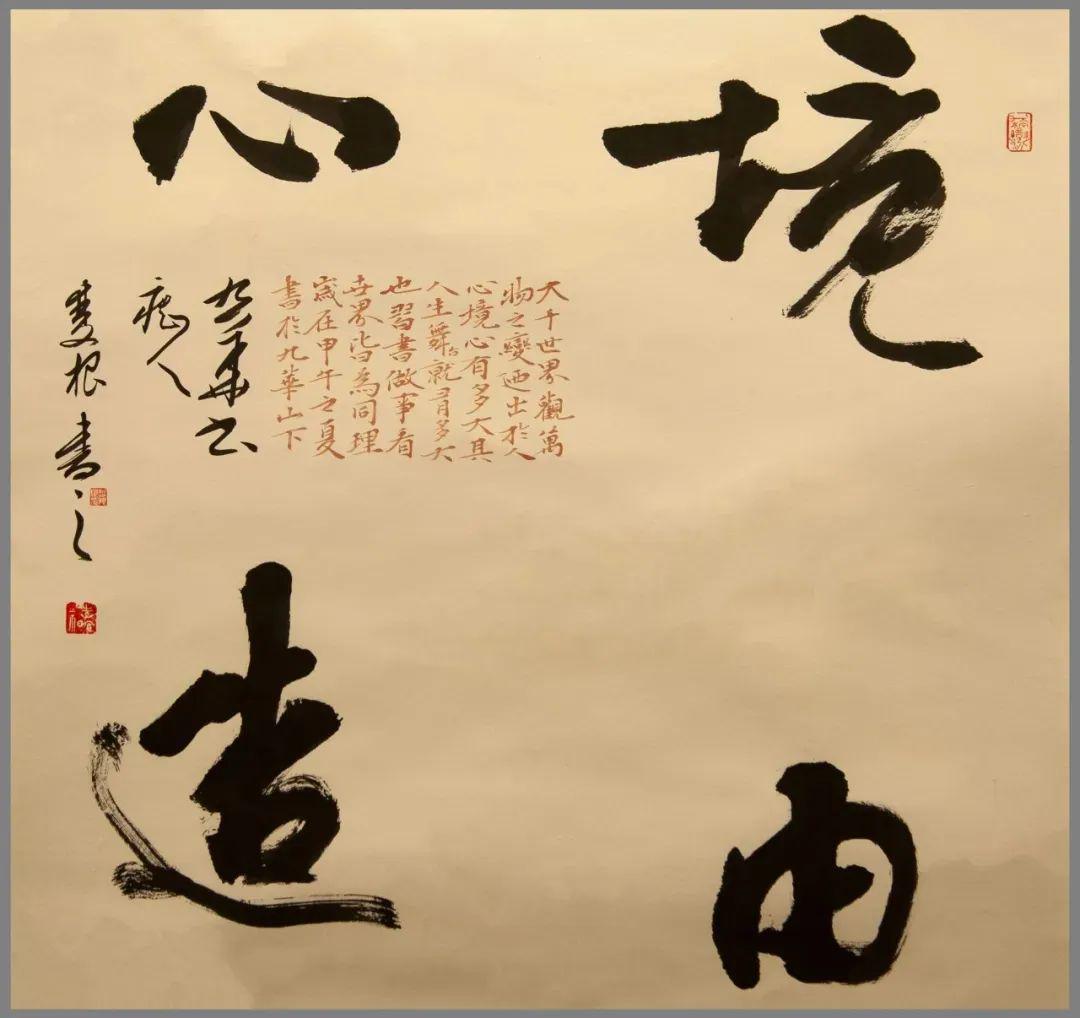 境由
心造
大千世界觀萬
物之變迺出於人
心境心有多大具
人生舞台就有多大
也習書做事看
世界皆為同理
歲在甲午之夏
書於九華山下
九華书
痴人
雙根書之